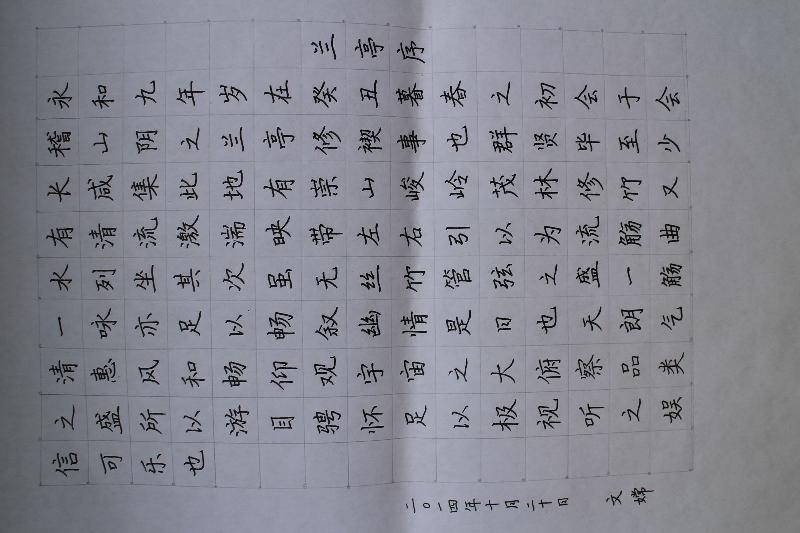 兰亭序
永和九年岁在癸丑暮春之初会于会
稽山阴之兰亭修禊事也群贤毕至少
长咸集此地有崇山峻岭茂林修竹又
有清流激湍映带左右引以为流觞曲
水列坐其次虽无丝竹管弦之盛一觞
一咏亦足以畅叙幽情是日也天朗气
清惠风和畅仰观宇宙之大俯察品类
之盛所以游目骋怀足以极视听之娱
信可乐也
二〇一四年十月二十日 文嫦